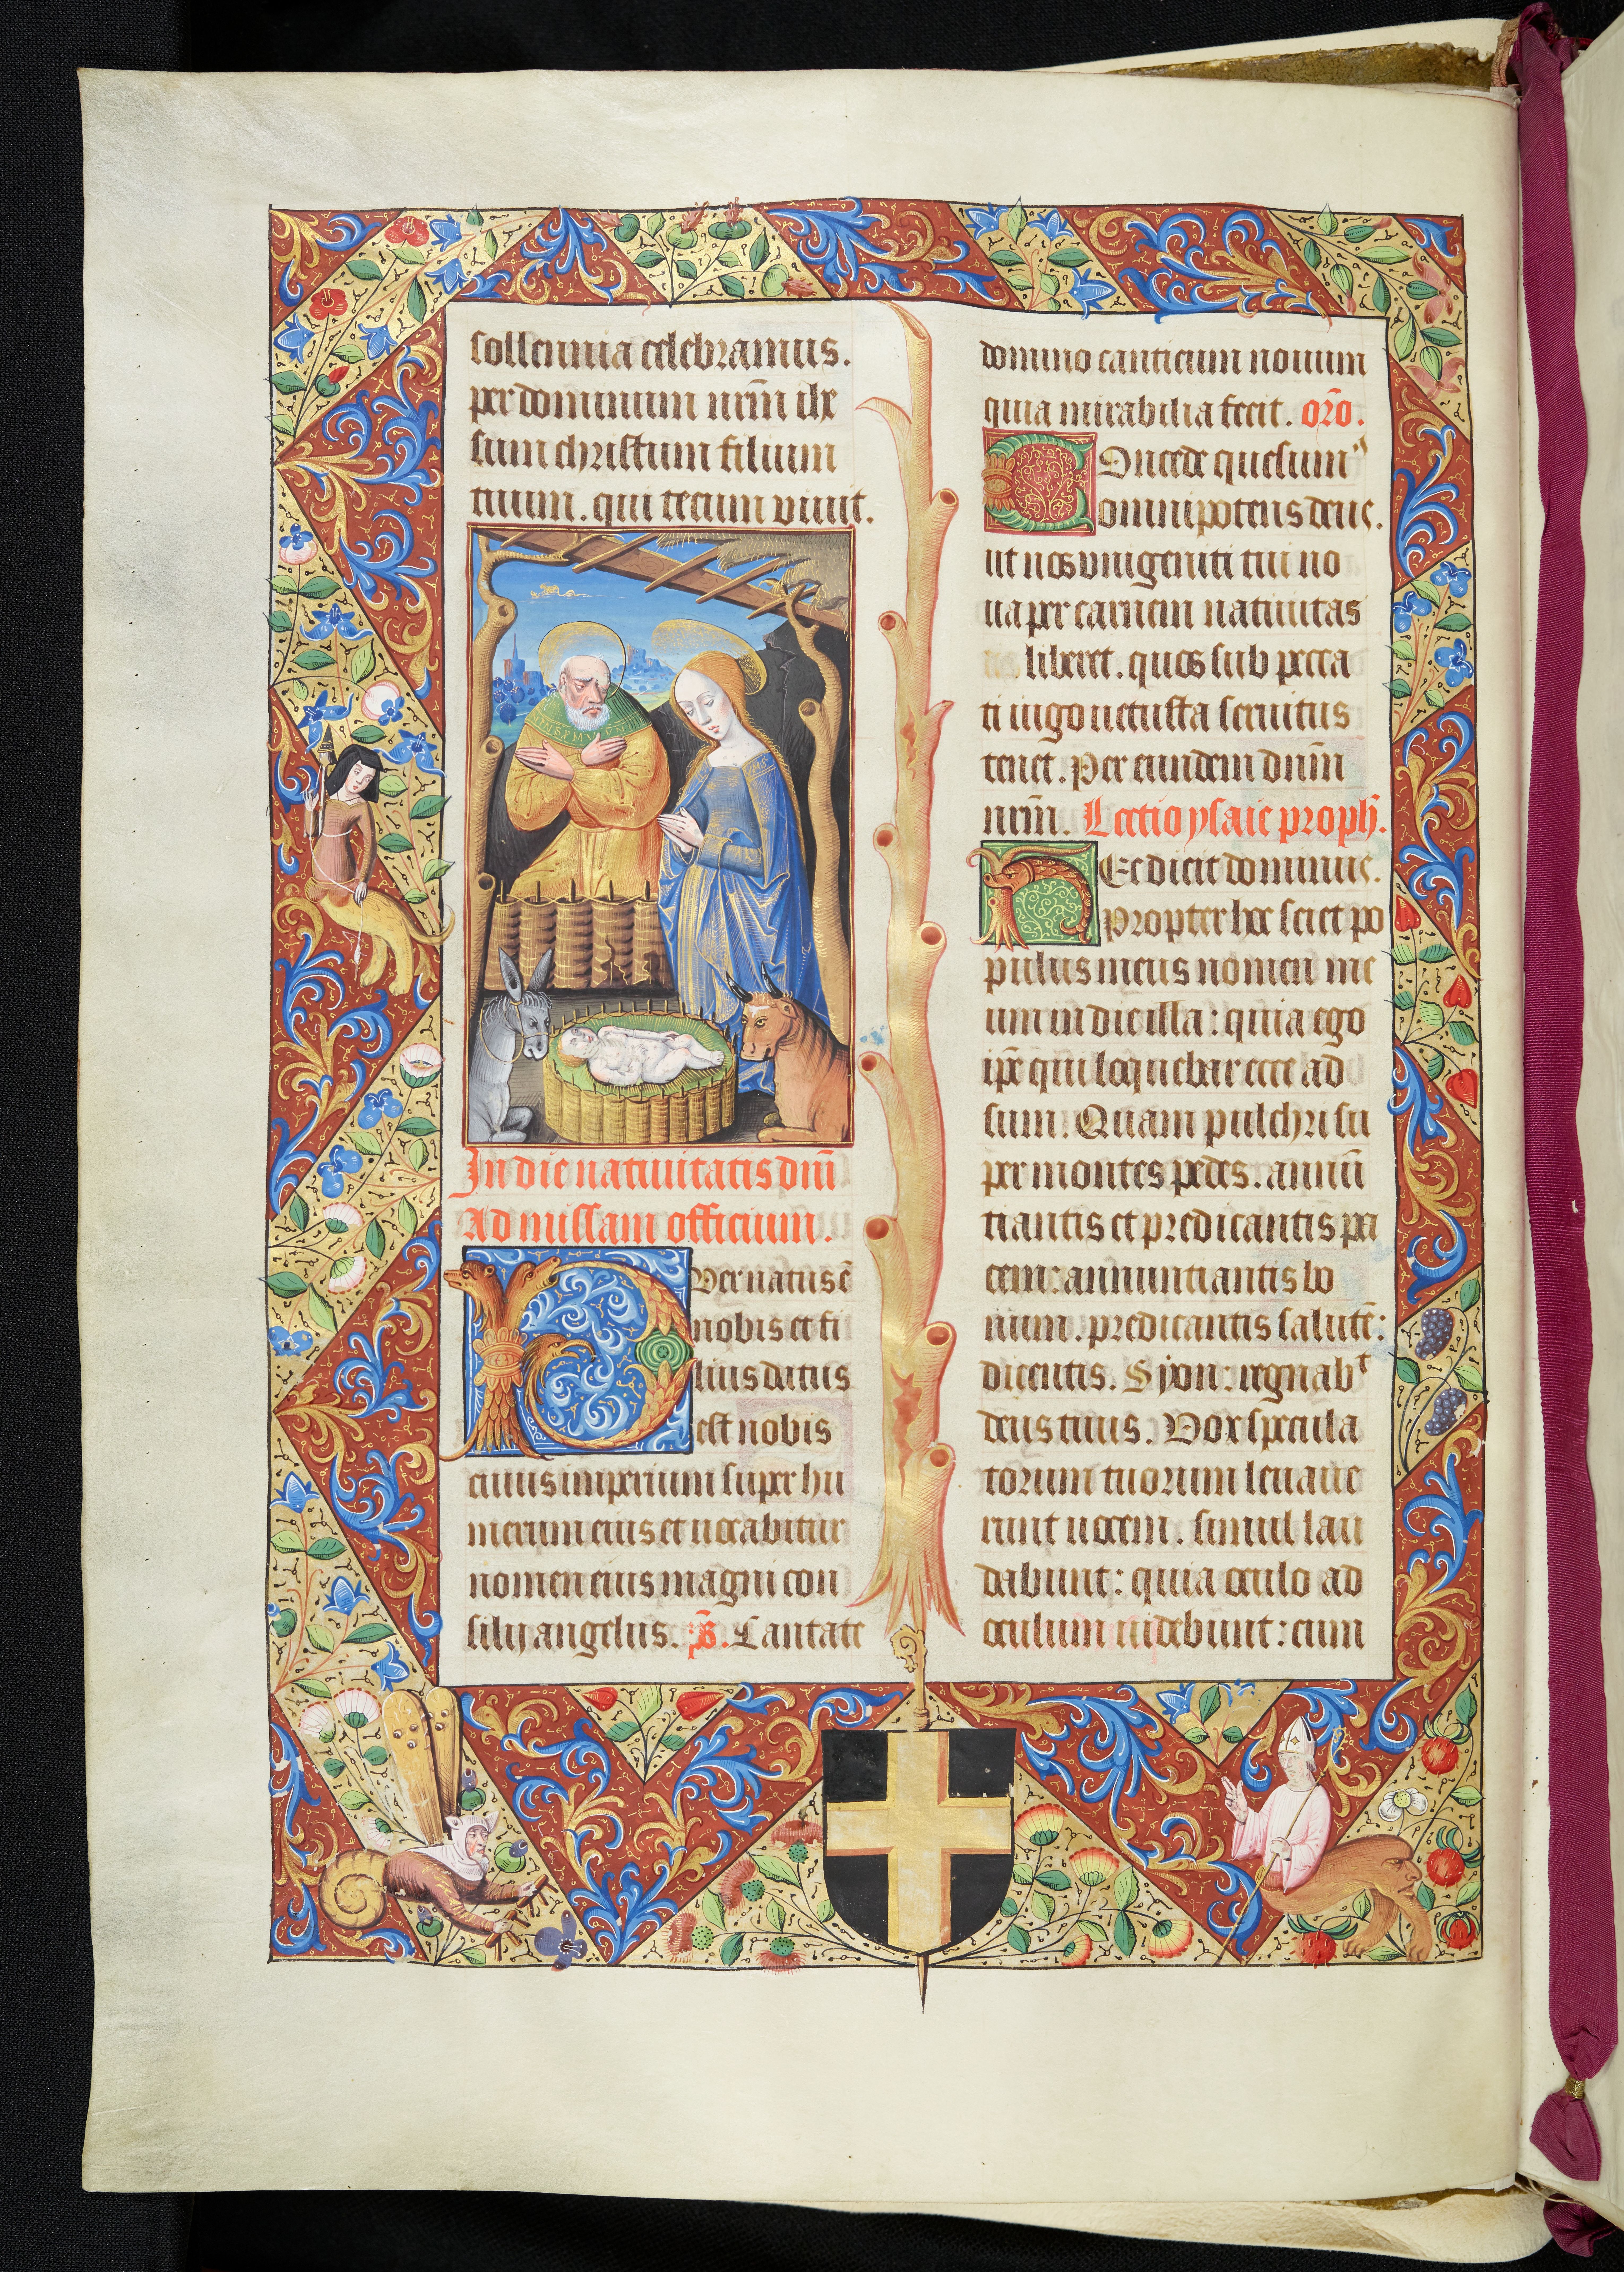 sollennia celebramus.
per dominum nr̄m ihe
sum christum filium
tuum. qui tecum viuit.
In die natiuitatis dn̄i
Ad missam officium.
Puer natus ē
nobis et fi
lius datus
est nobis
cuius imperium super hu
merum eius et uocabitur
nomen eius magni con
silij angelus. p̄s. Cantate
domino canticum nouum
quia mirabilia fecit. or̄o.
Concede quesum⁹
omnipotens deus.
ut nos vnigeniti tui no
ua per carnem natiuitas
liberet. quos sub pecca
ti iugo uetusta seruitus
tenet. Per eundem dnm̄
nr̄m. Lectio ysaie proph̄.
Hec dicit dominus.
Propter hoc sciet po
pulus meus nomen me
um in die illa: quia ego
ip̄e qui loquebar ecce ad
sum. Quam pulchri su
per montes pedes. annū
tiantis et predicantis pa
cem: annuntiantis bo
num. predicantis salutē:
dicentis. Syon: regnabᵗ
deus tuus. Vox specula
torum tuorum leuaue
runt uocem. simul lau
dabunt: quia oculo ad
oculum uidebunt: cum